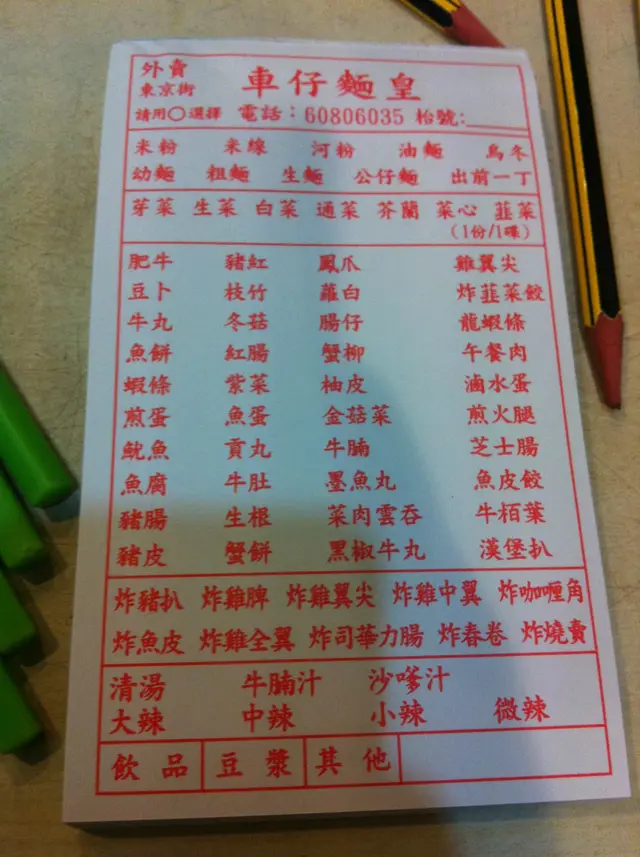 外賣 車仔麵皇
東京街
請用○選擇 電話：60806035 枱號:
米粉 米線 河粉 油麵 烏冬
幼麵 粗麵 生麵 公仔麵 出前一丁
芽菜 生菜 白菜 通菜 芥蘭 菜心 韮菜
(1份/1碟)
肥牛 豬紅 鳳爪 雞翼尖
豆卜 枝竹 蘿白 炸韮菜餃
牛丸 冬菇 腸仔 龍蝦條
魚餅 紅腸 蟹柳 午餐肉
蝦條 紫菜 柚皮 滷水蛋
煎蛋 魚蛋 金菇菜 煎火腿
魷魚 貢丸 牛腩 芝士腸
魚腐 牛肚 墨魚丸 魚皮餃
豬腸 生根 菜肉雲吞 牛栢葉
豬皮 蟹餅 黑椒牛丸 漢堡扒
炸豬扒 炸雞脾 炸雞翼尖 炸雞中翼 炸咖喱角
炸魚皮 炸雞全翼 炸司華力腸 炸春卷 炸燒賣
清湯 牛腩汁 沙嗲汁
大辣 中辣 小辣 微辣
飲品 豆漿 其他